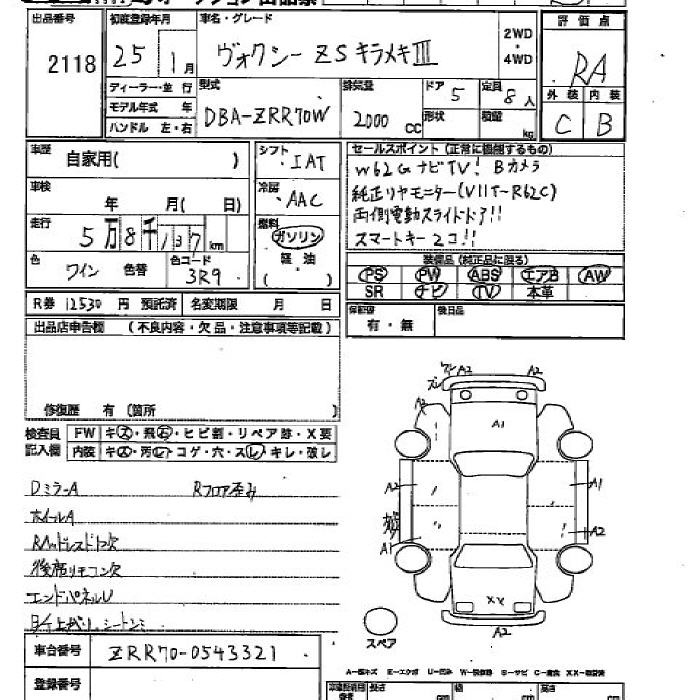 出品番号 初度登録年月 車名・グレード 評価点
2118 25 1月 ヴォクシー ZS キラメキIII 2WD・4WD RA
ディーラー・並行 型式 排気量 ドア 5 定員 8人 外装 内装
モデル年式 年 DBA-ZRR70W 2000 CC 形状 積載 kg C B
ハンドル 左・右
車歴 自家用( ) シフト セールスポイント(正常に機能するもの)
IAT W62G ナビTV! Bカメラ
車検 年 月( 日) 冷房 AAC 純正リヤモニター(V11T-R62C)
走行 5万8千137km 燃料 ガソリン 両側電動スライドドア!!
軽油 スマートキー2コ!!
色 ワイン 色替 色コード 3R9 ( ) 装備品(純正品に限る)
PS PW ABS エアB AW
R券 12530 円 預託済 名変期限 月 日 SR ナビ TV 本革
出品店申告欄 (不良内容・欠品・注意事項等記載) 保証書 有・無 後日品
修復歴 有 (箇所 )
検査員 FW キズ・飛石・ヒビ割・リペア跡・X要
記入欄 内装 キズ・汚レ・コゲ・穴・スレ・キレ・破レ
A2 A2
A1
DミラーA Rフロア歪み
A2 A1
ホイールA
A1 A2
後席リモコン欠
エンドパネルU
XX
A2
スペア
車台番号 ZRR70-0543321
登録番号
A-傷キズ E-エクボ U-凹み
長さ cm 幅 cm 高さ cm